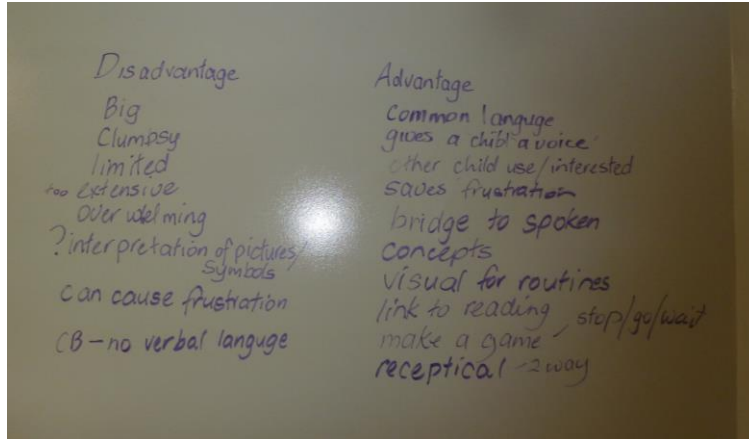 Disadvantage
Big
Clumpsy
limited
too extensive
over welming
? interpretation of pictures/
symbols
can cause frustration
CB - no verbal languge
Advantage
Common languge
gives a child a voice
other child use/interested
saves frustration
bridge to spoken
concepts
visual for routines
link to reading
make a game - stop/go/wait
receptical - 2 way